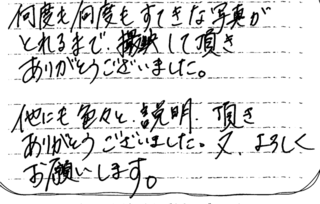 何度も何度もすてきな写真が
とれるまで、撮映して頂き
ありがとうございました。
他にも色々と、説明、頂き
ありがとうございました。又、よろしく
お願いします。